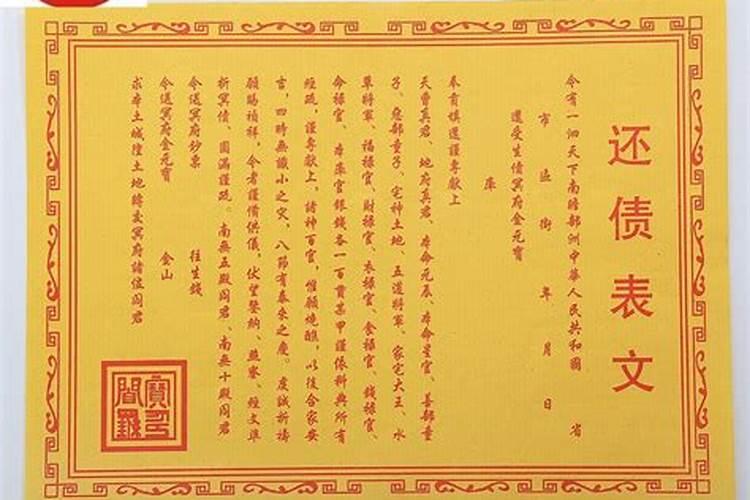 还债表文
今有一泗天下南瞻部洲中華人民共和國 省
市 區 街 年 月 日
還受生債冥府金元寶
庫
奉育填還謹專獻上
天曹真君、地府真君、本命元辰、本命星官、善部童
子、惡部童子、宅神土地、五道將軍、家宅大王、水
草將軍、福祿官、財祿官、衣祿官、食祿官、錢祿官、
命祿官、本庫官銀錢各一百貫某甲謹依科典所有
經疏，謹專獻上，諸神百官，惟願燒醮，以後合家安
吉，四時無識小之灾，八節有泰來之慶。虔誠祈禱
願賜禎祥，令者謹備供儀，伏望鑒納、 經文準
折冥債、圓滿謹疏。南無五殿閻君、南無十殿閻君
令送冥府鈔票 往生錢
令送冥府金元寶 金山
求本土城隍土地轉交冥府諸位閻君